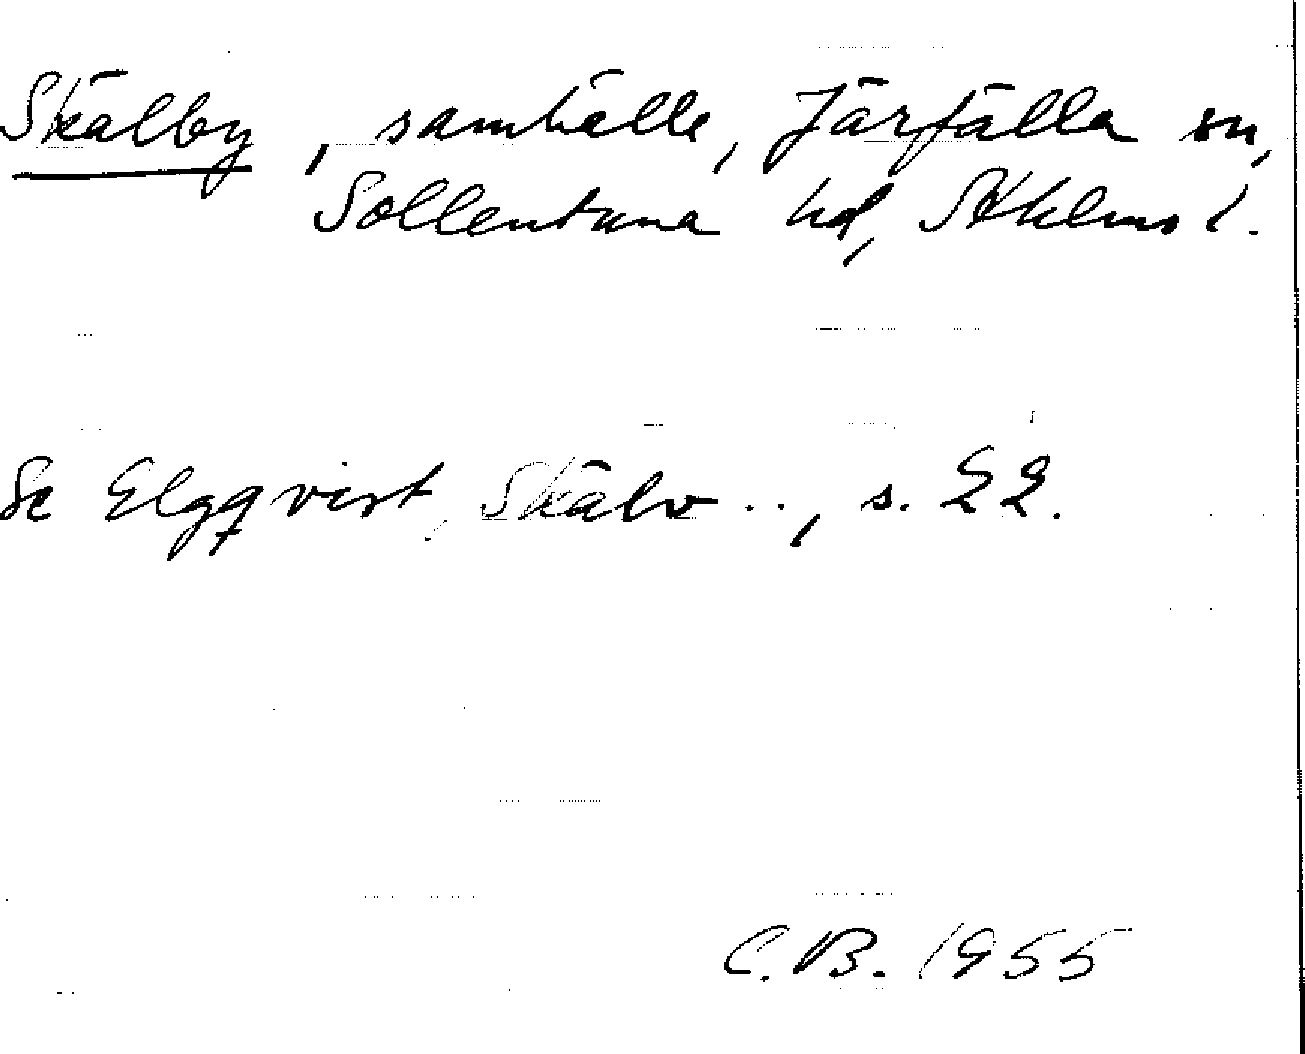 Skälby, samhälle, Järfälla sn,
Sollentuna hd, Sthlms l.
Se Elgqvist, Skälv..., s. 22.
C.B. 1955